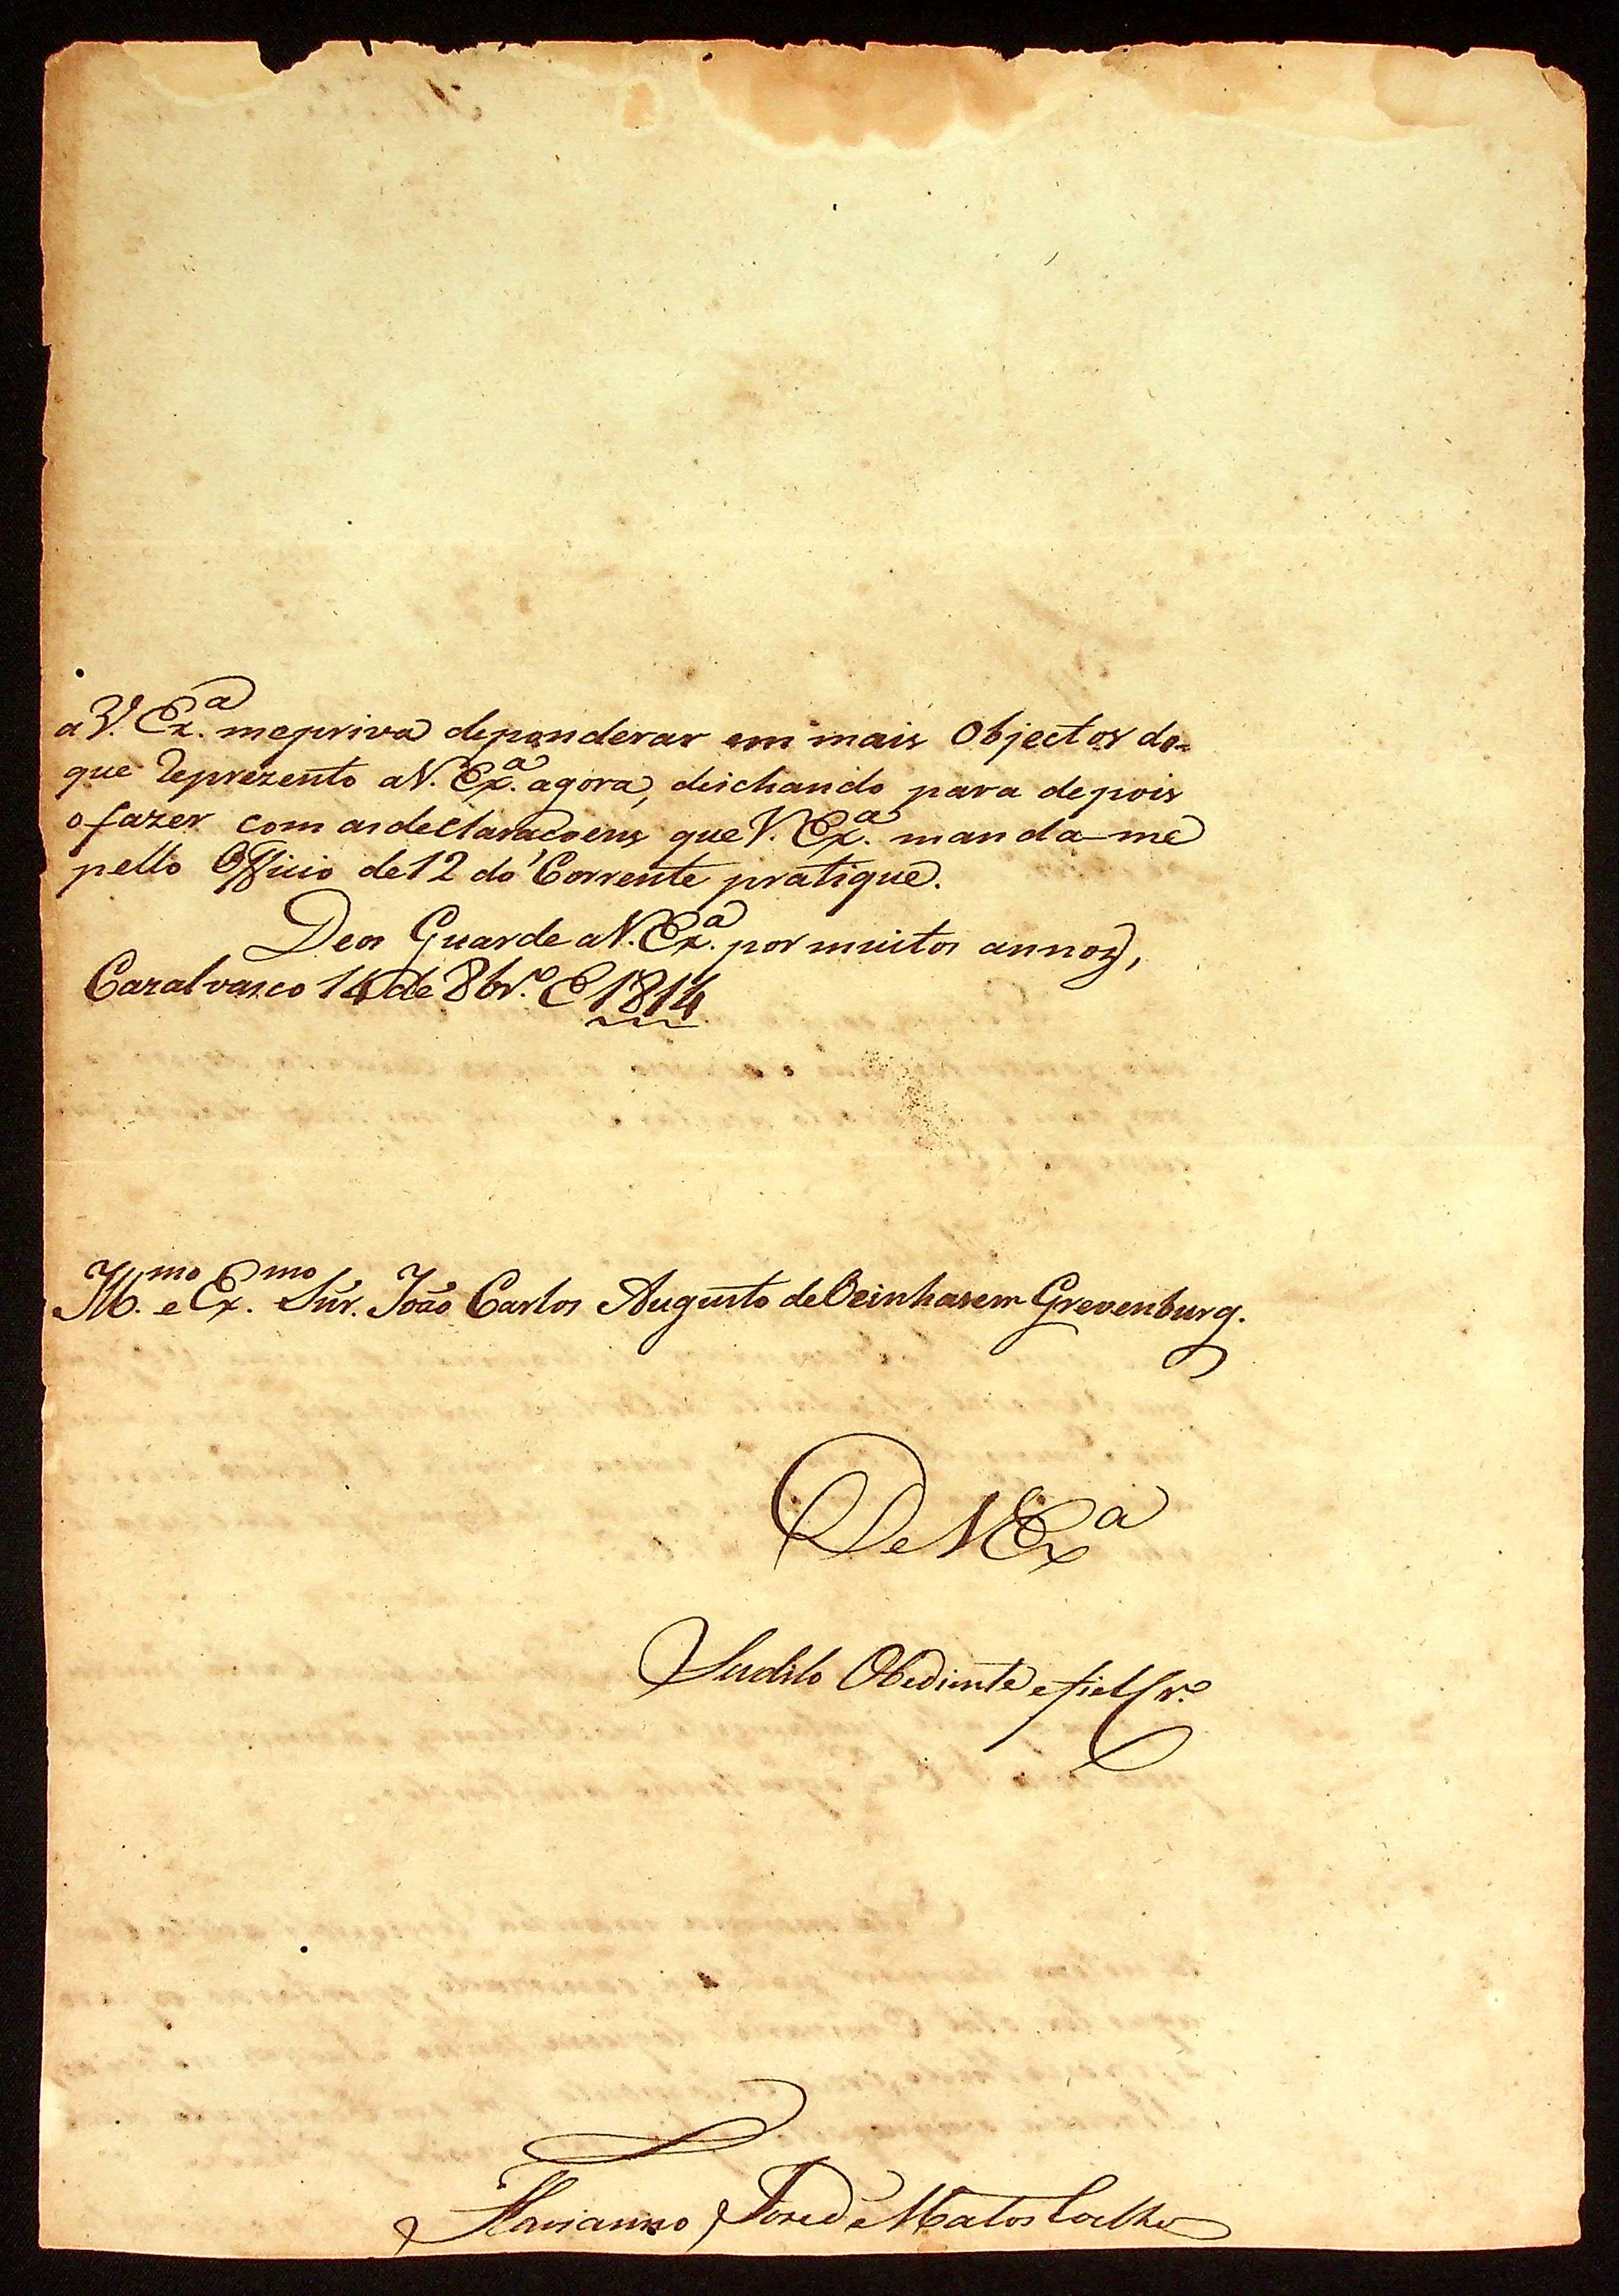 a V. Ex.ª mepriva deponderar em mais Objectos do=
que reprezento aV. Ex.ª agora, deichando para depois
ofazer com asdeclaracoens que V. Ex.ª manda-me
pello Officio de 12 do Corrente pratique.
Deos Guarde aV. Ex.ª por muitos annos,
Cazalvasco 14 de 8br.º E 1814
Ill.mo e Ex.mo Snr. João Carlos Augusto de Oeinhasem Grevenburg.
De V Exª
Sudito Obediente e fiel Cr.º
Flavianno Joze de Matos Coelho